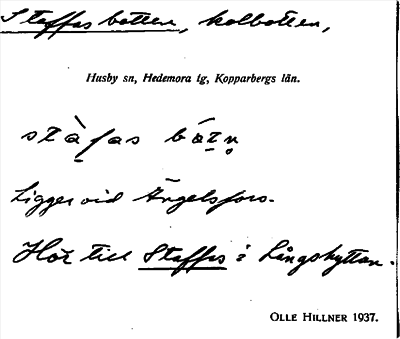 Staffas botten, kolbotten,
Husby sn, Hedemora tg, Kopparbergs län.
stàfas bótn̥
Ligger vid Ängelsfors.
Hör till Staffas i Långshyttan.
OLLE HILLNER 1937.